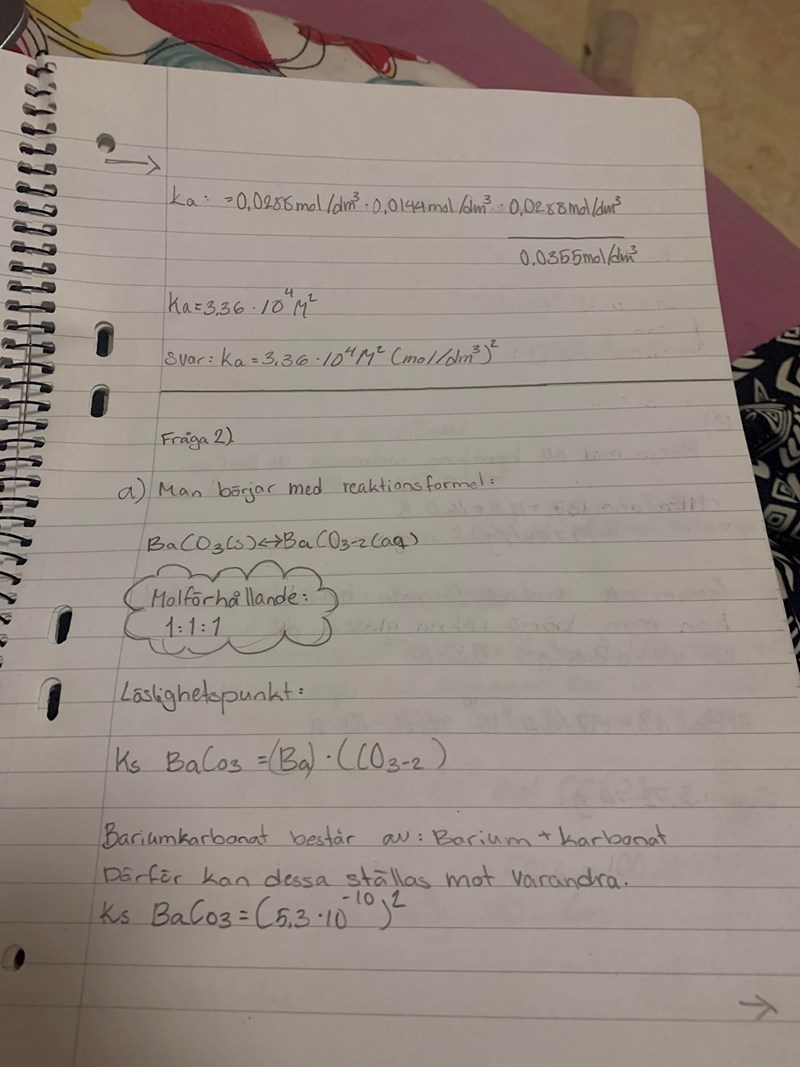 →
Ka: = 0,0288mol/dm³ · 0,0144mol/dm³ · 0,0288mol/dm³
0,0355mol/dm³
Ka=3,36 · 10⁴M²
Svar: Ka = 3,36 · 10⁴M² (mol/dm³)²
Fråga 2)
a) Man börjar med reaktionsformel:
BaCO₃(s)↔BaCO₃-₂(aq)
Molförhållande:
1:1:1
Löslighetspunkt:
Ks BaCo₃ =(Ba) · (CO₃-₂)
Bariumkarbonat består av: Barium + karbonat
Därför kan dessa ställas mot varandra.
Ks BaCo₃ = (5,3·10⁻¹⁰)²
→